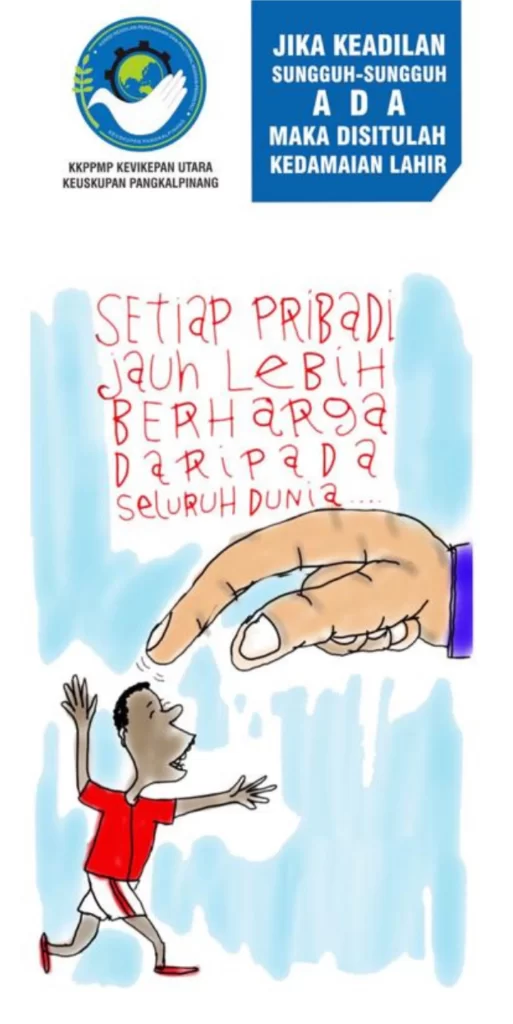 KEUSKUPAN PANGKALPINANG
KKPPMP KEVIKEPAN UTARA
KEUSKUPAN PANGKALPINANG
JIKA KEADILAN
SUNGGUH-SUNGGUH
A D A
MAKA DISITULAH
KEDAMAIAN LAHIR
SETiaP PRiBaDi
jauh LeBiH
BERHaRga
DaRiPaDa
SeLURUH DUNia....